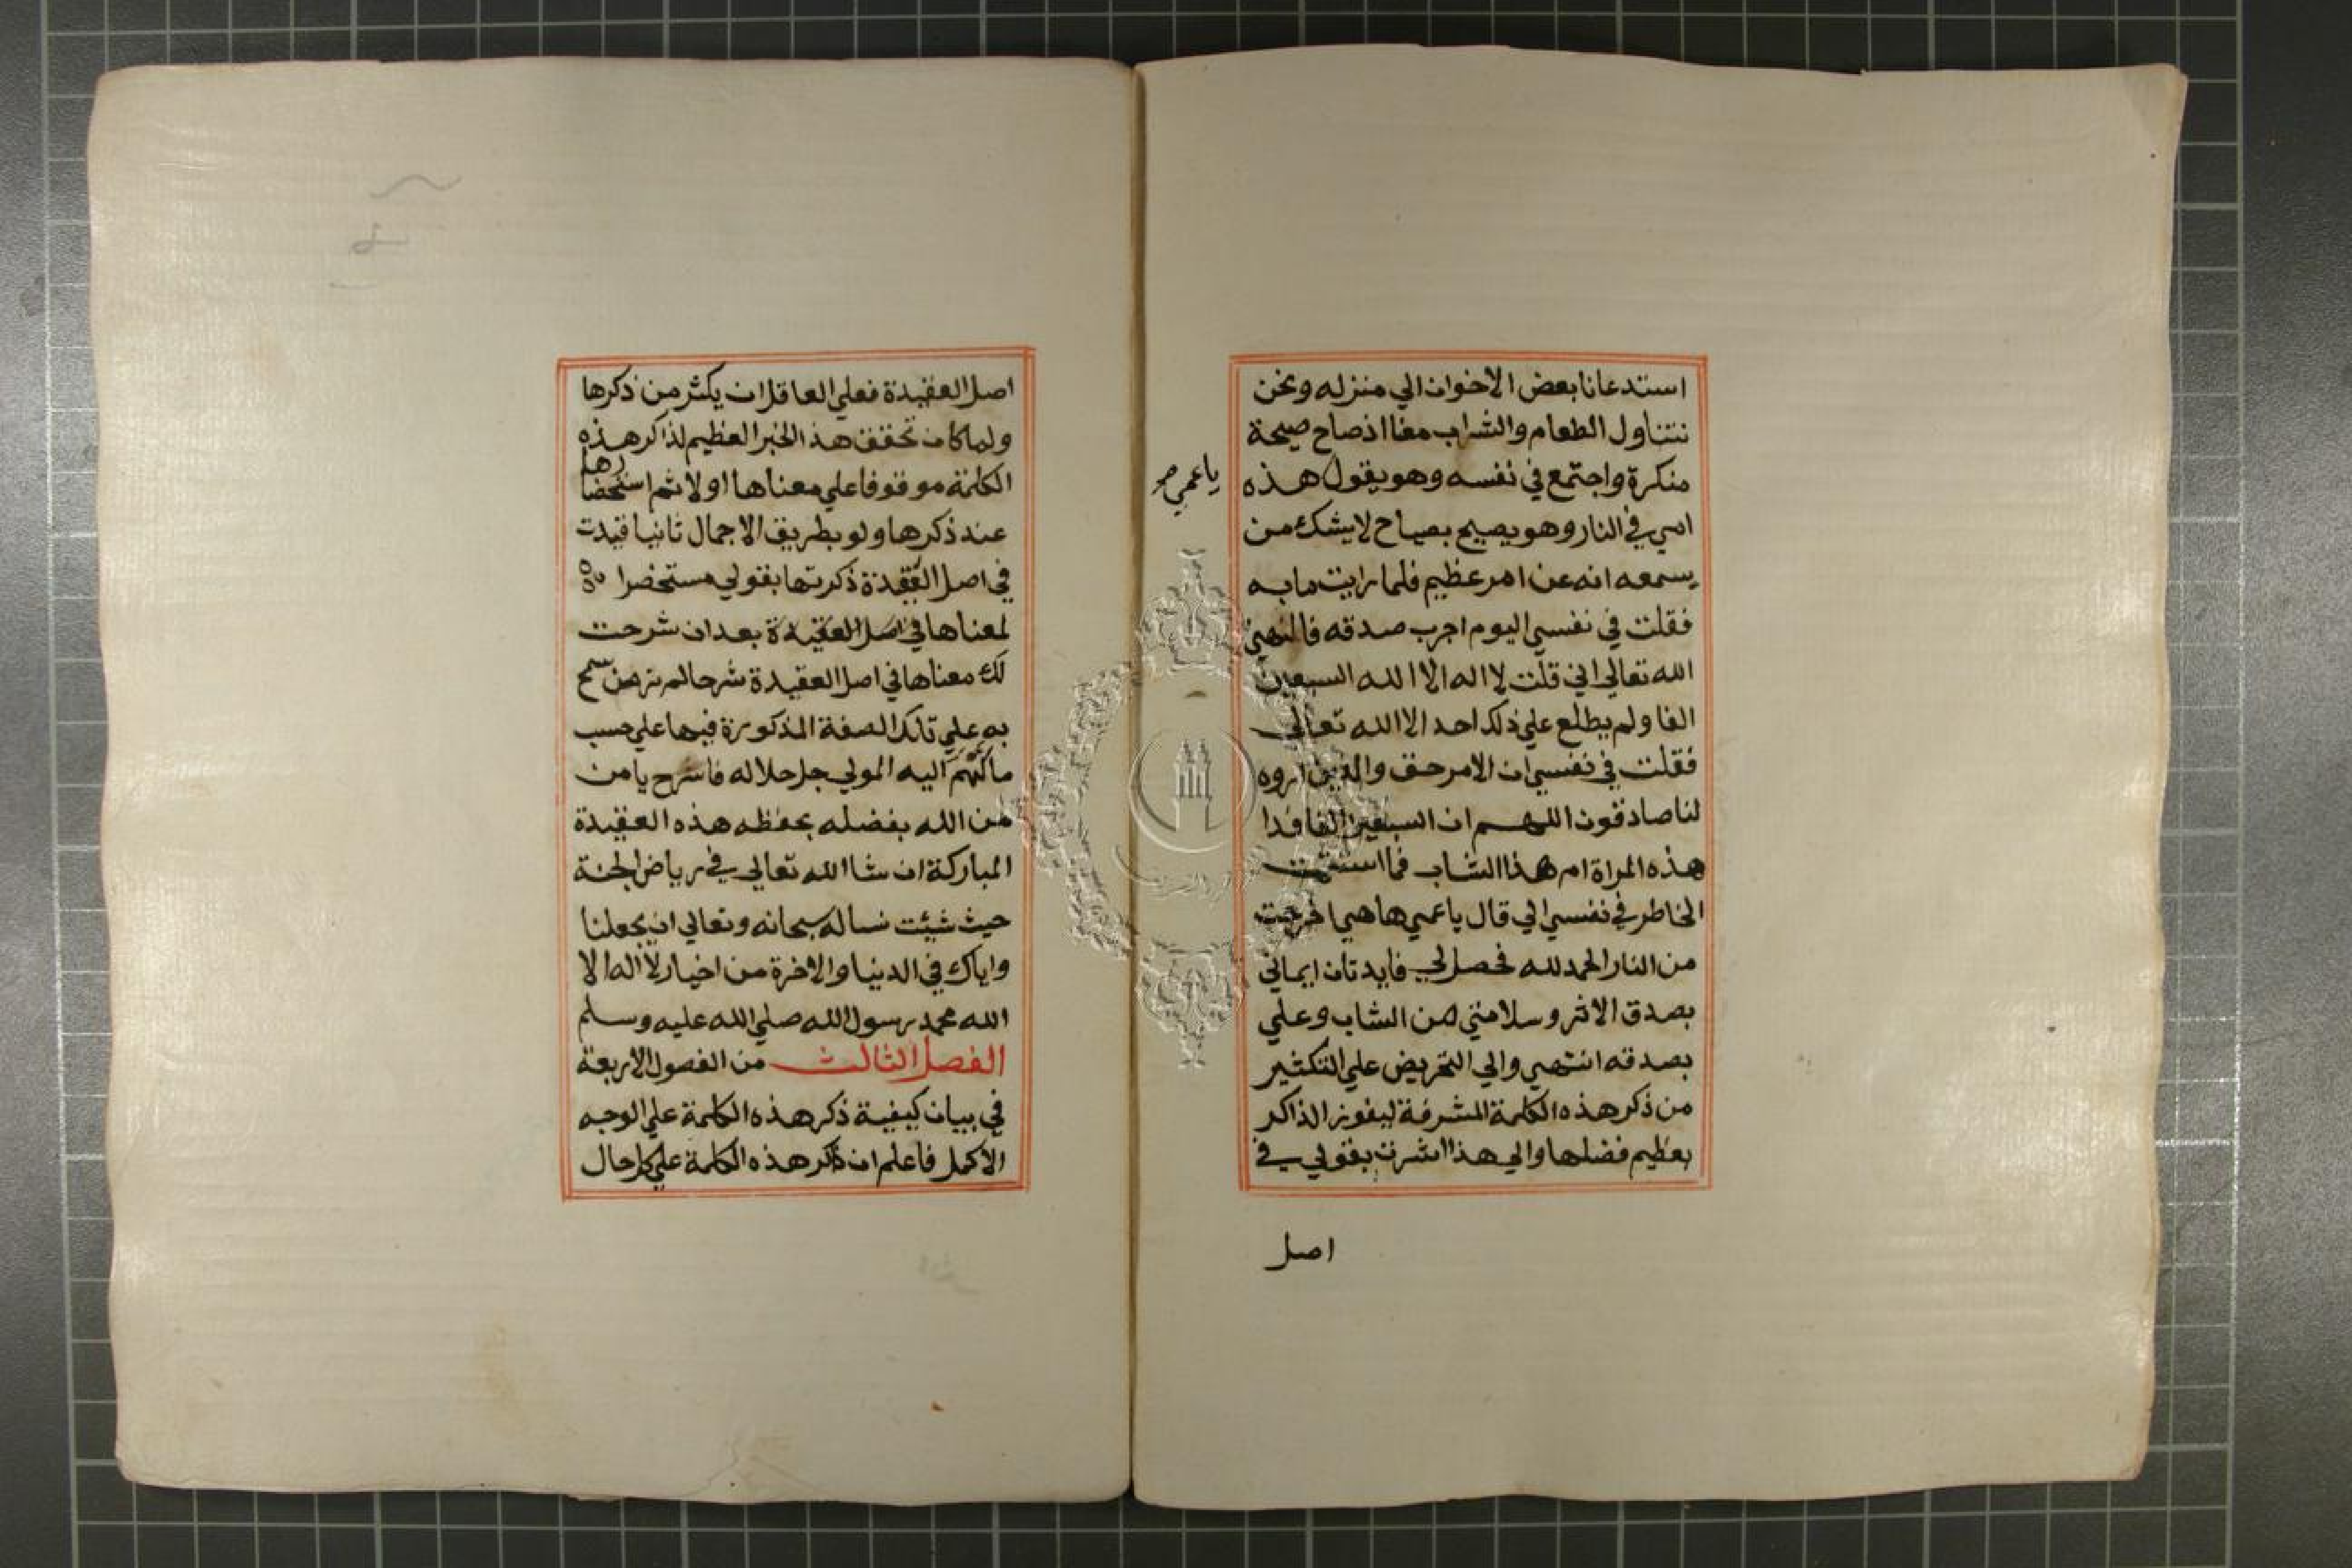 استدعانا بعض الاخوان الي منزله ونحن
نتناول الطعام والشراب معنا اذ صاح صيحة
منكرة واجتمع في نفسه وهو يقول هذه
يا عمي صح
امي في النار وهو يصيح بصياح لا يشك من
يسمعه انه عن امر عظيم فلما رايت ما به
فقلت في نفسي اليوم اجرب صدقه فالهمني
الله تعالي اني قلت لا اله الا الله السبعين
الفا ولم يطلع علي ذلك احد الا الله تعالي
فقلت في نفسي ان الامر حق والذين اروه
لنا صادقون اللهم ان السبعين الفا فدا
هذه المراة ام هذا الشاب فما استتمت
الخاطر في نفسي الي قال يا عمي ها هي اخرجت
من النار الحمد لله فحصل لي فايدتان ايماني
بصدق الاثر وسلامتي من الشاب وعلمي
بصدقه انتهي والي التحريض علي التكثير
من ذكر هذه الكلمة المشرفة ليفوز الذاكر
بعظيم فضلها والي هذا اشرت بقولي في
اصل
اصل العقيدة فعلي العاقل ان يكثر من ذكرها
ولما كان تحقق هذا الخبر العظيم لذاكر هذه
الكلمة موقوفا علي معناها اولا ثم استحضارها
عند ذكرها ولو بطريق الاجمال ثانيا قيدت
في اصل العقيدة ذكرتها بقولي مستحضرا
لمعناها في اصل العقيدة بعد ان شرحت
لك معناها في اصل العقيدة شرحا لم تر من سمح
به علي تلك الصفة المذكورة فيها علي حسب
ما الهم اليه المولي جل جلاله فاسرح يا من
من الله بفضله بحفظه هذه العقيدة
المباركة ان شا الله تعالي في رياض الجنة
حيث شيئت نساله سبحانه وتعالي ان يجعلنا
واياك في الدنيا والاخرة من اخيار لا اله الا
الله محمد رسول الله صلي الله عليه وسلم
الفصل الثالث من الفصول الاربعة
في بيان كيفية ذكر هذه الكلمة علي الوجه
الاكمل فاعلم ان ذكر هذه الكلمة علي كل حال